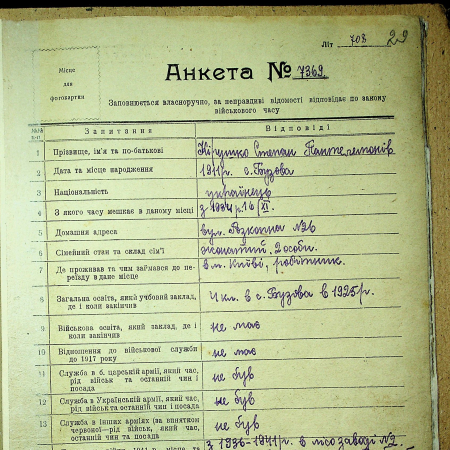 Літ 703 29
Місце
для
фотокартки
Анкета № 7369.
Заповнюється власноручно, за неправдиві відомості відповідає по закону
військового часу
№№ п-п Запитання Відповіді
1 Прізвище, ім'я та по-батькові Кірушко Степан Пантелемонів
2 Дата та місце народження 1911 р. с. Бузова
3 Національність українець
4 З якого часу мешкає в даному місці з 1934 р. 16/XI.
5 Домашня адреса вул. №26
6 Сімейний стан та склад сім'ї жонатий, 2 особи.
7 Де проживав та чим займався до пе-
реїзду в дане місце в м. Київі, робітник.
8 Загальна освіта, який учбовий заклад,
де і коли закінчив 4 кл. в с. Бузова в 1925 р.
9 Військова освіта, який заклад, де і
коли закінчив не має
10 Відношення до військової служби
до 1917 року не має
11 Служба в б. царській армії, який час,
рід військ та останній чин і
посада не був
12 Служба в Українській армії, який час,
рід військ та останній чин і посада не був
13 Служба в інших арміях (за винятком
червоної—рід військ, який час,
останній чин та посада не був
з 1936-1941 р. в лісозаводі №2.